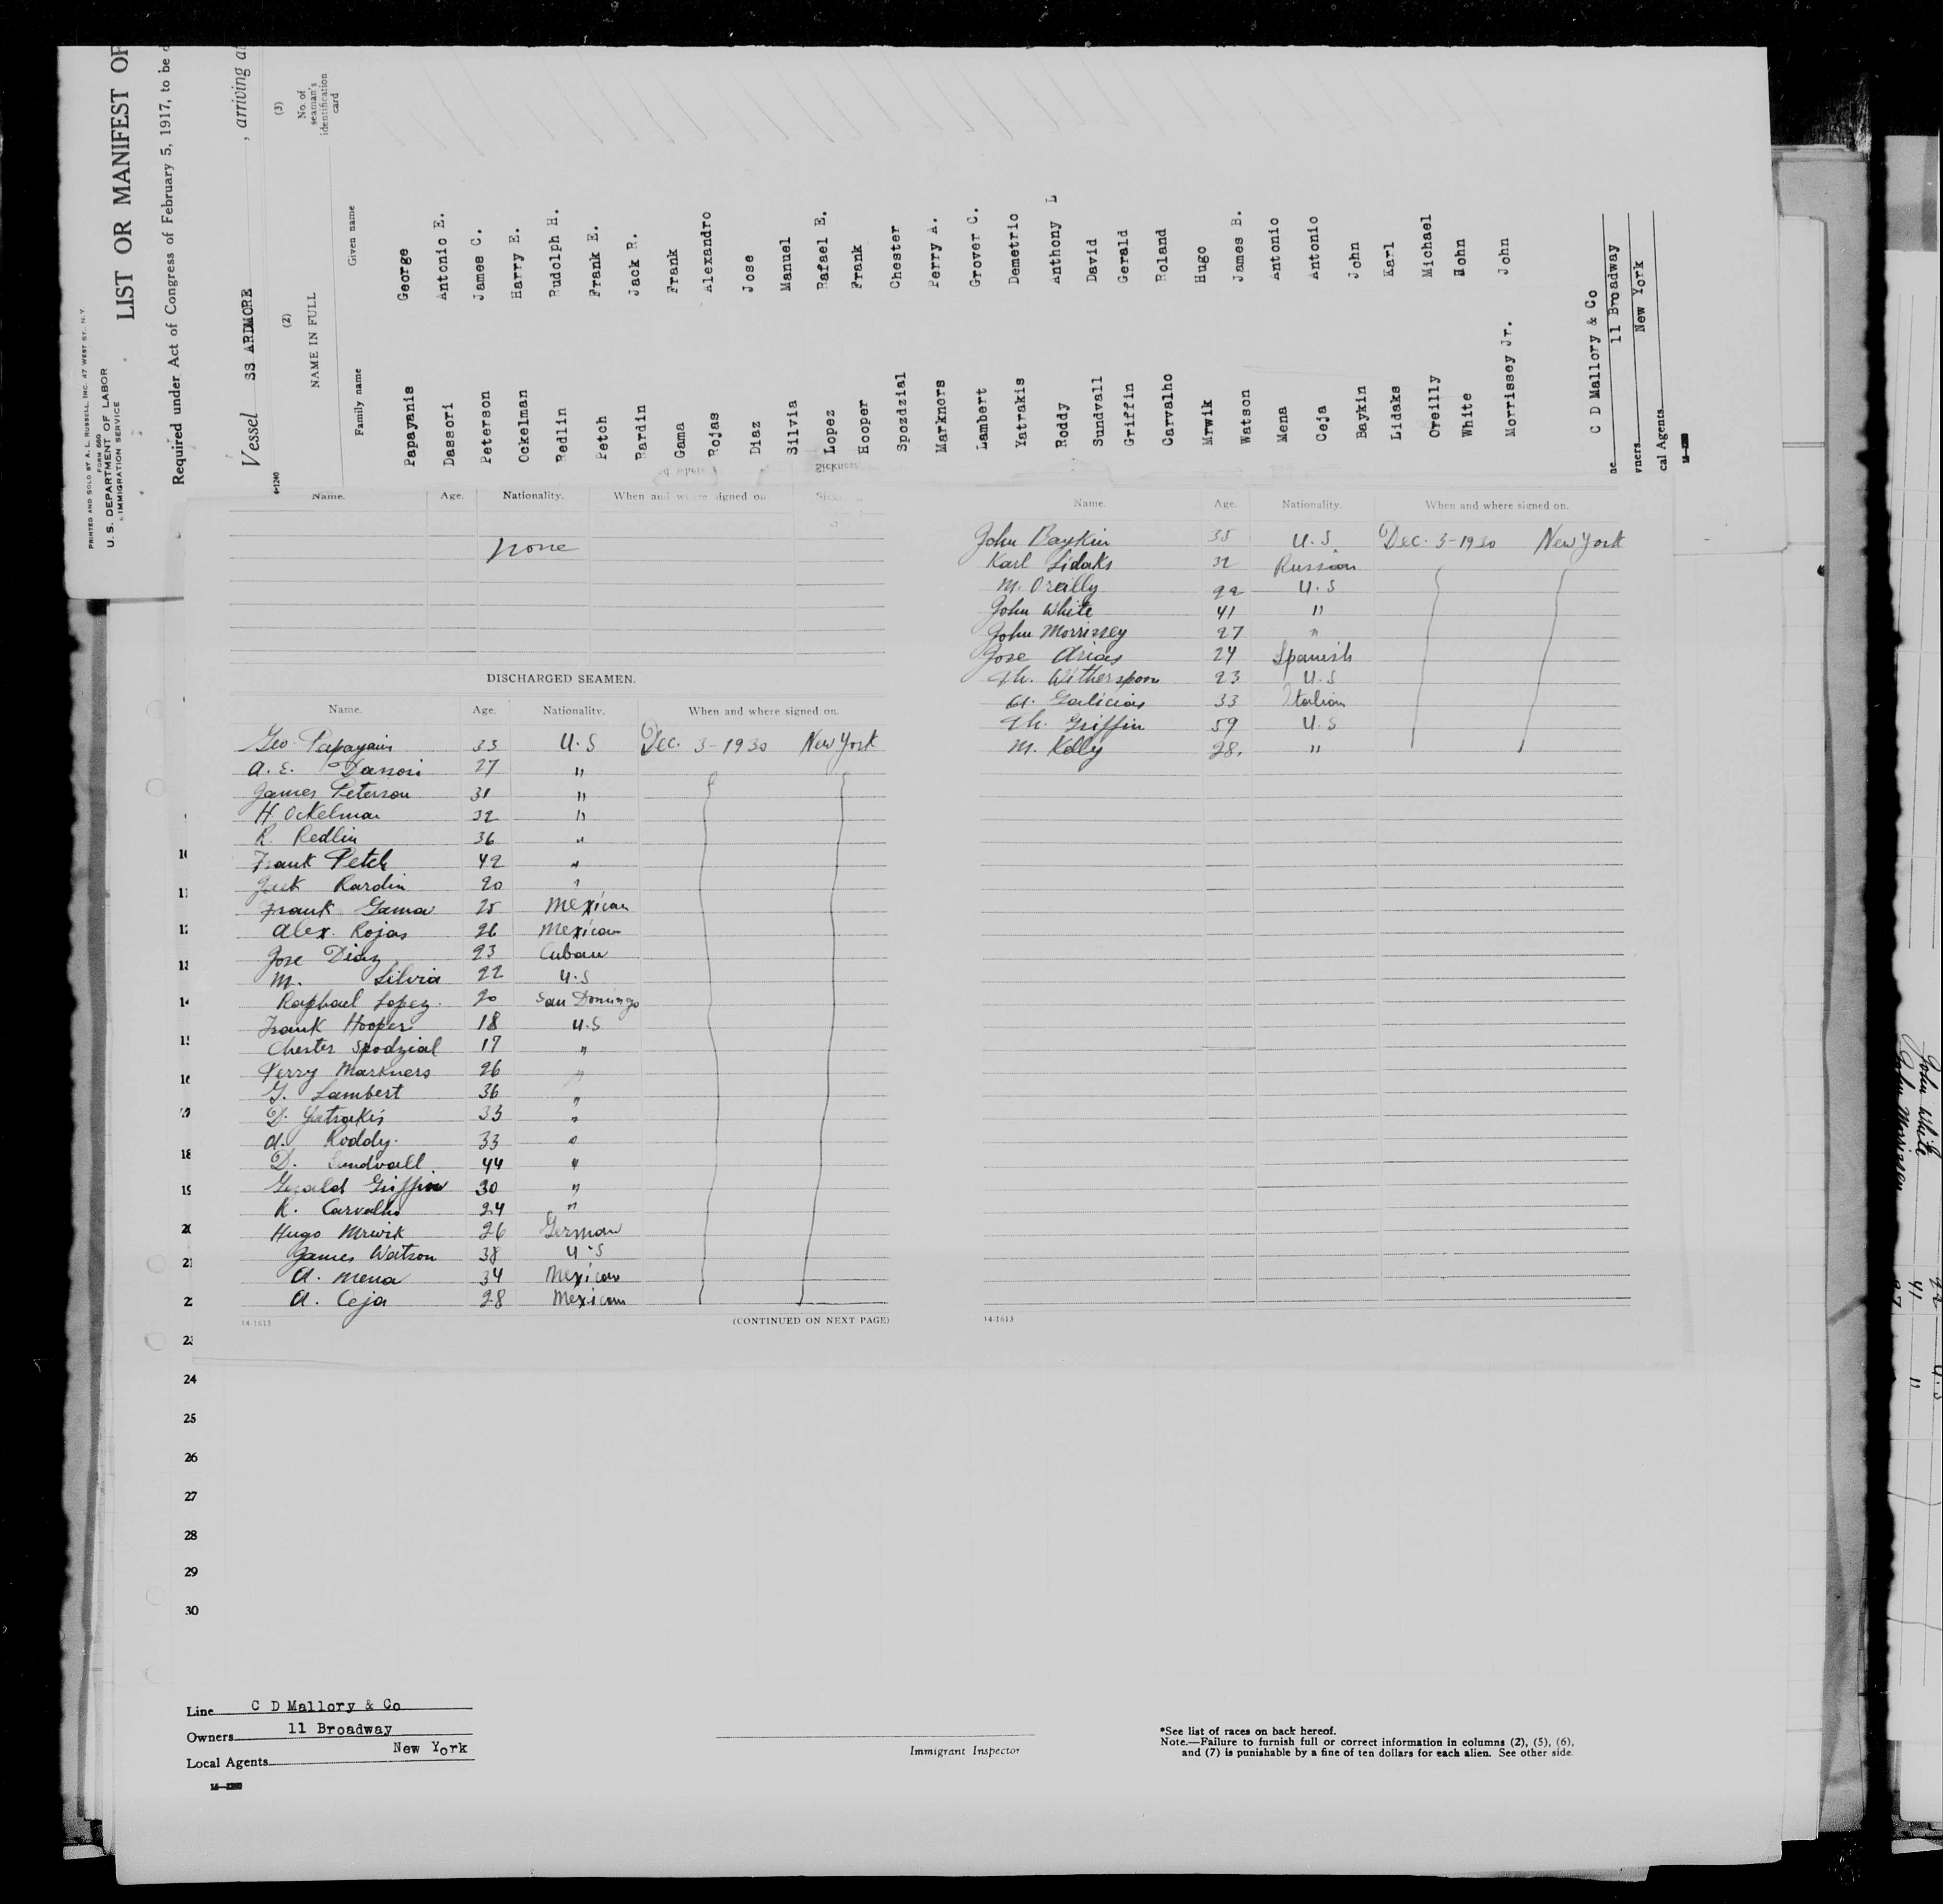 PRINTED AND SOLD BY A. L. RUSSELL, INC. 47 WEST ST., N.Y.
FORM 680
U. S. DEPARTMENT OF LABOR
IMMIGRATION SERVICE
LIST OR MANIFEST OF
Required under Act of Congress of February 5, 1917, to be
Vessel SS ARDMORE , arriving at
(2) (3)
NAME IN FULL No. of seaman's identification card
Family name Given name
Papayanis George
Dassori Antonio E.
Peterson James C.
Ockelman Harry E.
Redlin Rudolph H.
Petch Frank E.
Rardin Jack R.
Gama Frank
Rojas Alexandro
Diaz Jose
Silvia Manuel
Lopez Rafael E.
Hooper Frank
Spozdzial Chester
Markners Perry A.
Lambert Grover C.
Yatrakis Demetric
Roddy Anthony L
Sundvall David
Griffin Gerald
Carvalho Roland
Mrwik Hugo
Watson James B.
Mena Antonio
Ceja Antonio
Baykin John
Lidaks Karl
Oreilly Michael
White Hohn
Morrissey Jr. John
C D Mallory & Co
11 Broadway
vners New York
cal Agents
Name. Age. Nationality. When and where signed on
none
DISCHARGED SEAMEN.
Name. Age. Nationality. When and where signed on.
Geo. Papayanis 33 U.S Dec. 3-1930 New York
A. E. Dassori 27 "
James Peterson 31 "
H Ockelman 32 "
R. Redlin 36 "
Frank Petch 42 "
Jack Rardin 20 "
Frank Gama 25 Mexican
Alex. Rojas 26 Mexican
Jose Diaz 23 Cuban
M. Silvia 22 U.S
Raphael Lopez. 20 San Domingo
Frank Hooper 18 U.S
Chester Spodzial 17 "
Perry Markners 26 "
G. Lambert 36 "
D. Yatrakis 33 "
A. Roddy. 33 "
D. Sundvall. 44 "
Gerald Griffin 30 "
R. Carvalho 24 "
Hugo Mrwik 26 German
James Watson 38 U.S
A. Mena 34 Mexican
A. Ceja 28 Mexican
14-1613 (CONTINUED ON NEXT PAGE)
Name. Age. Nationality. When and where signed on.
John Baykin 35 U.S. Dec. 3-1930 New York
Karl Lidaks 32 Russian
M. Oreilly 22 U.S
John White 41 "
John Morrissey 27 "
Jose Arias 24 Spanish
Th. Witherspoon 23 U.S
A. Galicias 33 Italian
Th. Griffin 59 U.S
M. Kelly 28. "
14-1613
24
25
26
27
28
29
30
Line C D Mallory & Co
Owners 11 Broadway
Local Agents New York
Immigrant Inspector
*See list of races on back hereof.
Note.—Failure to furnish full or correct information in columns (2), (5), (6),
and (7) is punishable by a fine of ten dollars for each alien. See other side.
John White 41 "
John Morrissey 27